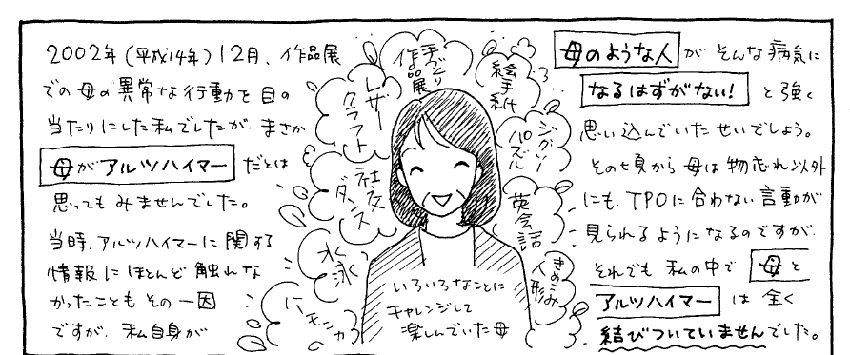 2002年(平成14年)12月、作品展
での母の異常な行動を目の
当たりにした私でしたが、まさか
母がアルツハイマーだとは
思ってもみませんでした。
当時、アルツハイマーに関する
情報にほとんど触れな
かったこともその一因
ですが、私自身が
手づくり
作品展
レザー
クラフト
社交
ダンス
水泳
絵手紙
ジグソー
パズル
英会話
きめこみ
人形
いろいろなことに
チャレンジして
楽しんでいた母
母のような人がそんな病気に
なるはずがない!と強く
思い込んでいたせいでしょう。
その頃から母は物忘れ以外
にも、TPOに合わない言動が
見られるようになるのですが、
それでも私の中で母と
アルツハイマーは全く
結びついていませんでした。